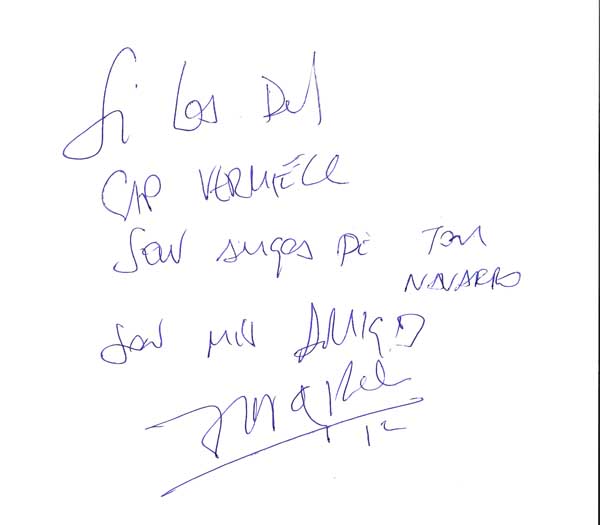 Si los del
CAP VERMELL
Son amigos de Tom
NAVARRO
son mis AMIGOS
12